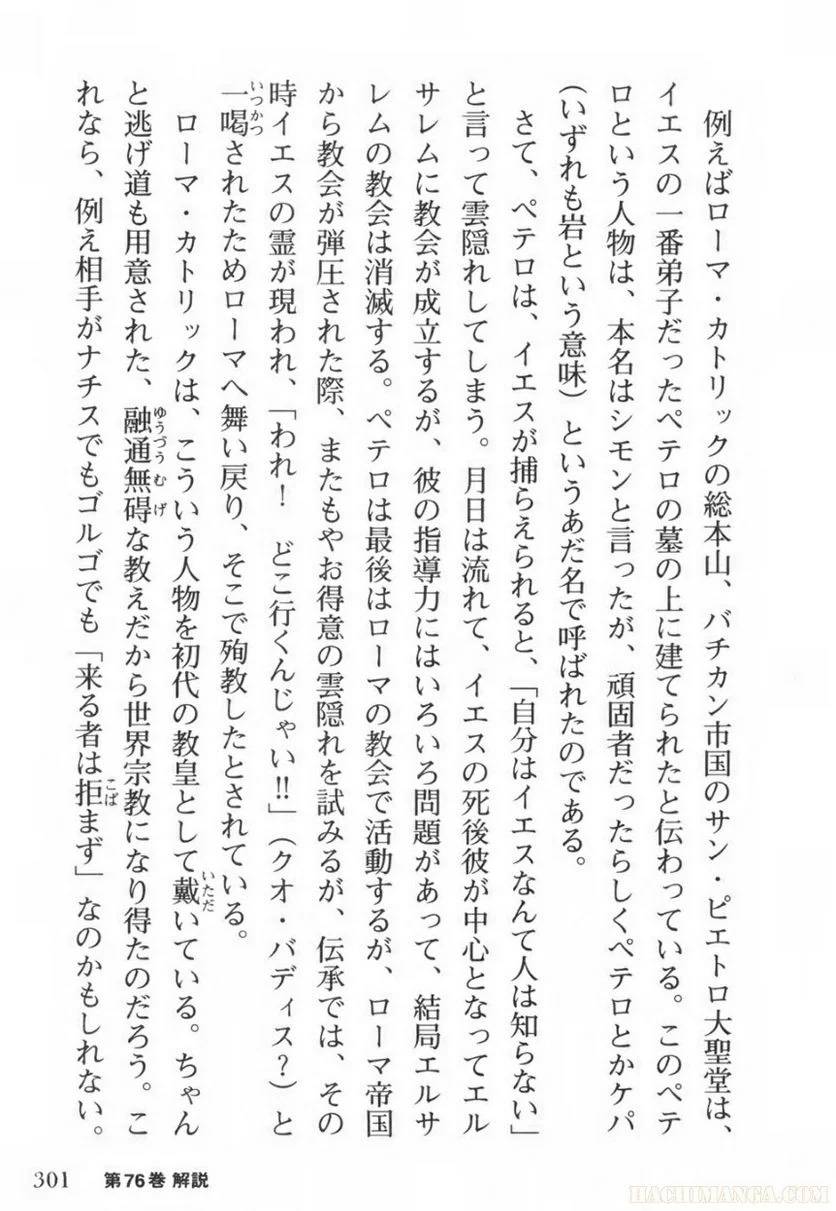 例えばローマ・カトリックの総本山、バチカン市国のサン・ピエトロ大聖堂は、
イエスの一番弟子だったペテロの墓の上に建てられたと伝わっている。このペテ
ロという人物は、本名はシモンと言ったが、頑固者だったらしくペテロとかケパ
(いずれも岩という意味)というあだ名で呼ばれたのである。
さて、ペテロは、イエスが捕らえられると、「自分はイエスなんて人は知らない」
と言って雲隠れしてしまう。月日は流れて、イエスの死後彼が中心となってエル
サレムに教会が成立するが、彼の指導力にはいろいろ問題があって、結局エルサ
レムの教会は消滅する。ペテロは最後はローマの教会で活動するが、ローマ帝国
から教会が弾圧された際、またもやお得意の雲隠れを試みるが、伝承では、その
時イエスの霊が現われ、「われ! どこ行くんじゃい!!」(クオ・バディス?)と
一喝されたためローマへ舞い戻り、そこで殉教したとされている。
いつかつ
ローマ・カトリックは、こういう人物を初代の教皇として戴いている。ちゃん
いただ
と逃げ道も用意された、融通無碍な教えだから世界宗教になり得たのだろう。こ
ゆうづうむげ
れなら、例え相手がナチスでもゴルゴでも「来る者は拒まず」なのかもしれない。
こば
301 第76巻 解説
HACHIMANGA.COM